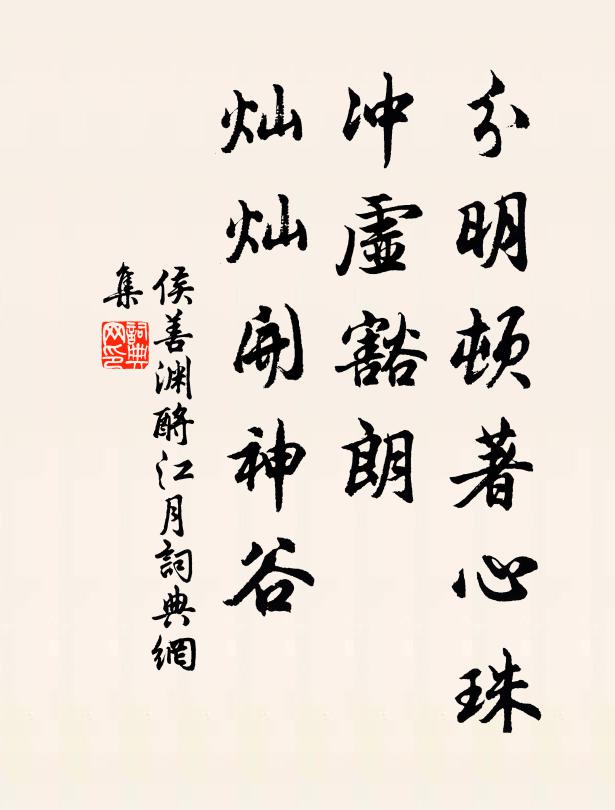 分明顿著心珠
冲虚豁朗
灿灿开神谷
侯善渊酹江月詞典網
集
詞典
网印